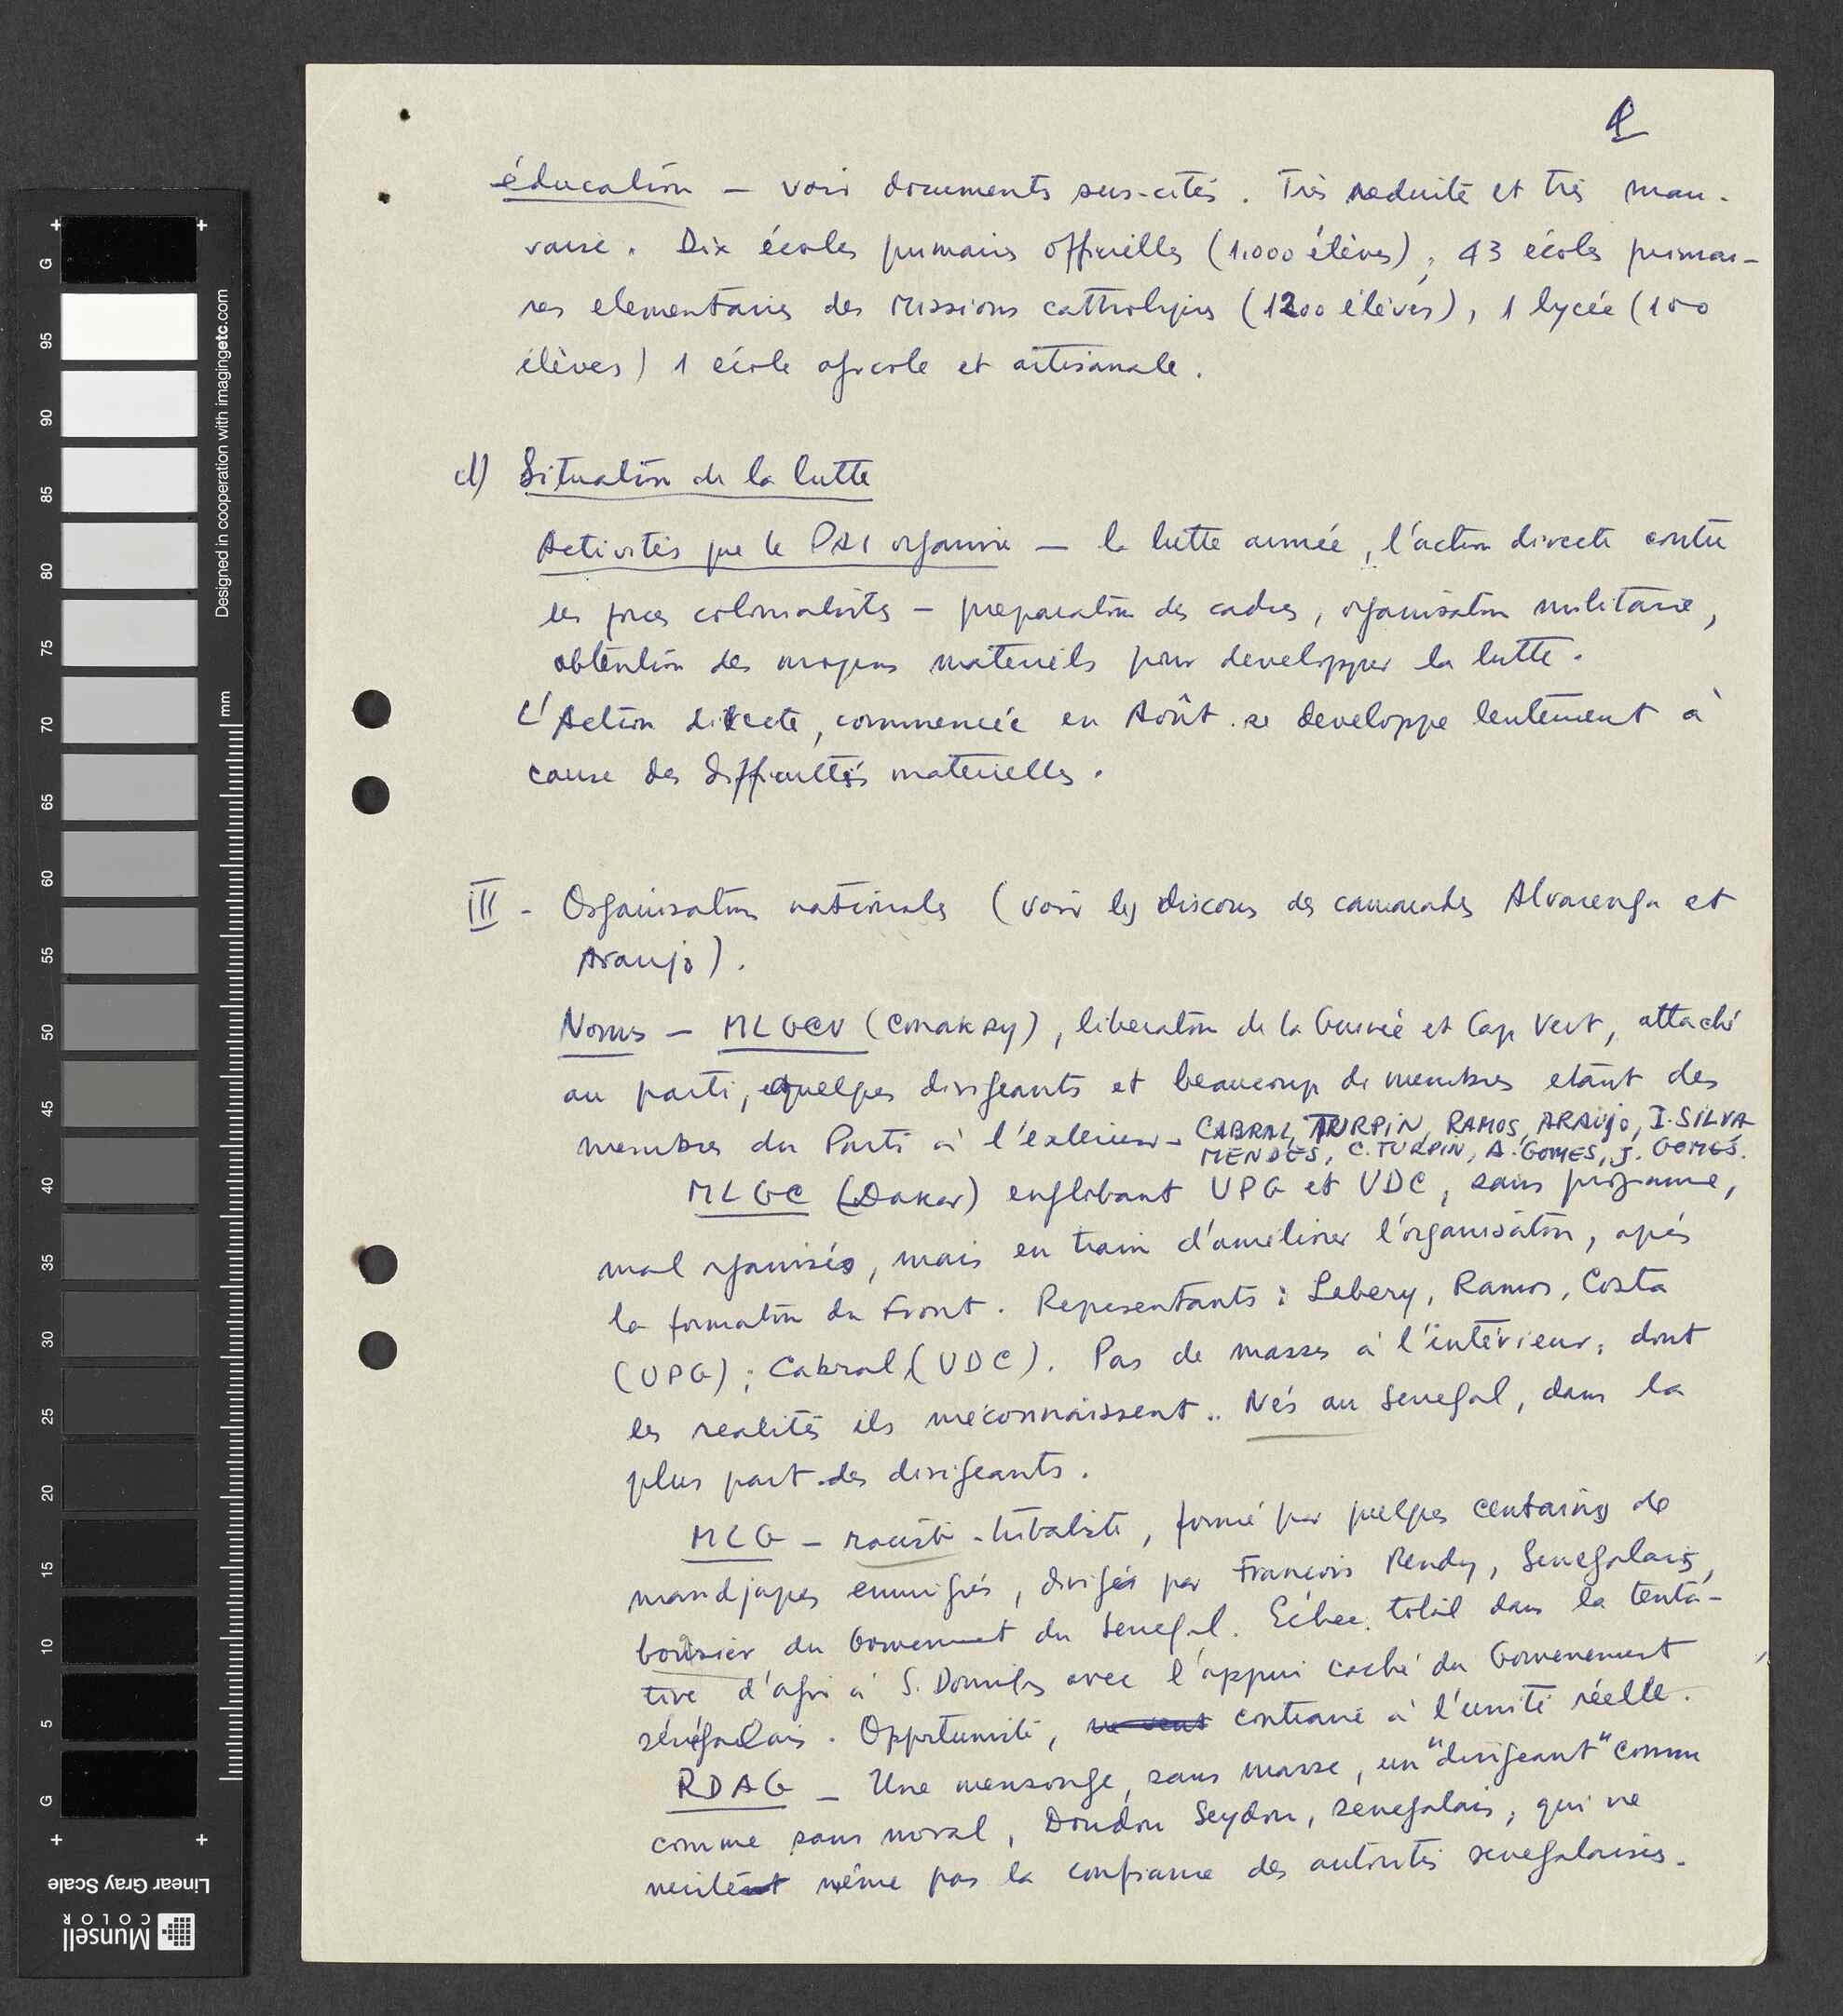 éducation — voir documents sus-cités. Très reduite et très mau-
vaise. Dix écoles primaires officielles (1.000 élèves), 43 écoles primai-
res elementaires des Missions catholiques (1200 élèves), 1 lycée (100
élèves) 1 école agricole et artisanale.
d) Situation de la lutte
Activités que le PAI organise — la lutte armée, l'action directe contre
les forces colonialistes — preparation des cadres, organisation militaire,
obtention des moyens materiels pour developper la lutte.
L'Action directe, commencée en Août se developpe lentement à
cause des difficultés materielles.
III - Organisations nationales (voir les discours des camarades Alvarenga et
Araujo).
Noms — MLGCV (Conakry), liberation de la Guinée et Cap Vert, attaché
au parti, quelques dirigeants et beaucoup de membres etant des
membres du Parti à l'exterieur - CABRAL, TURPIN, RAMOS, ARAUJO, I. SILVA
MENDES, C. TURPIN, A. GOMES, J. GOMES.
MLGC (Dakar) englobant UPG et UDC, sans programme,
mal organisés, mais en train d'ameliorer l'organisation, après
la formation du Front. Representants: Lebery, Ramos, Costa
(UPG); Cabral (UDC). Pas de masses à l'intérieur, dont
les realités ils meconnaissent. Nés au Senegal, dans la
plus part des dirigeants.
MLG — raciste-tribaliste, formé par quelques centaines de
mandjaques emmigrés, dirigés par François Mendy, Senegalais,
boursier du Gouvernement du Senegal. Échec total dans la tenta-
tive d'agir à S. Domingos avec l'appui caché du Gouvernement
sénégalais. Opportuniste, ne veut contraire à l'unité réelle.
RDAG — Une mensonge, sans masse, un "dirigeant" comme
comme sans moral, Doudou Seydou, senegalais, qui ne
merite même pas la confiance des autorités senegalaises.
Designed in cooperation with imagingetc.com
mm
G
95
90
85
80
75
70
65
60
55
50
45
40
35
30
25
20
15
10
5
G
Linear Gray Scale
Munsell
COLOR